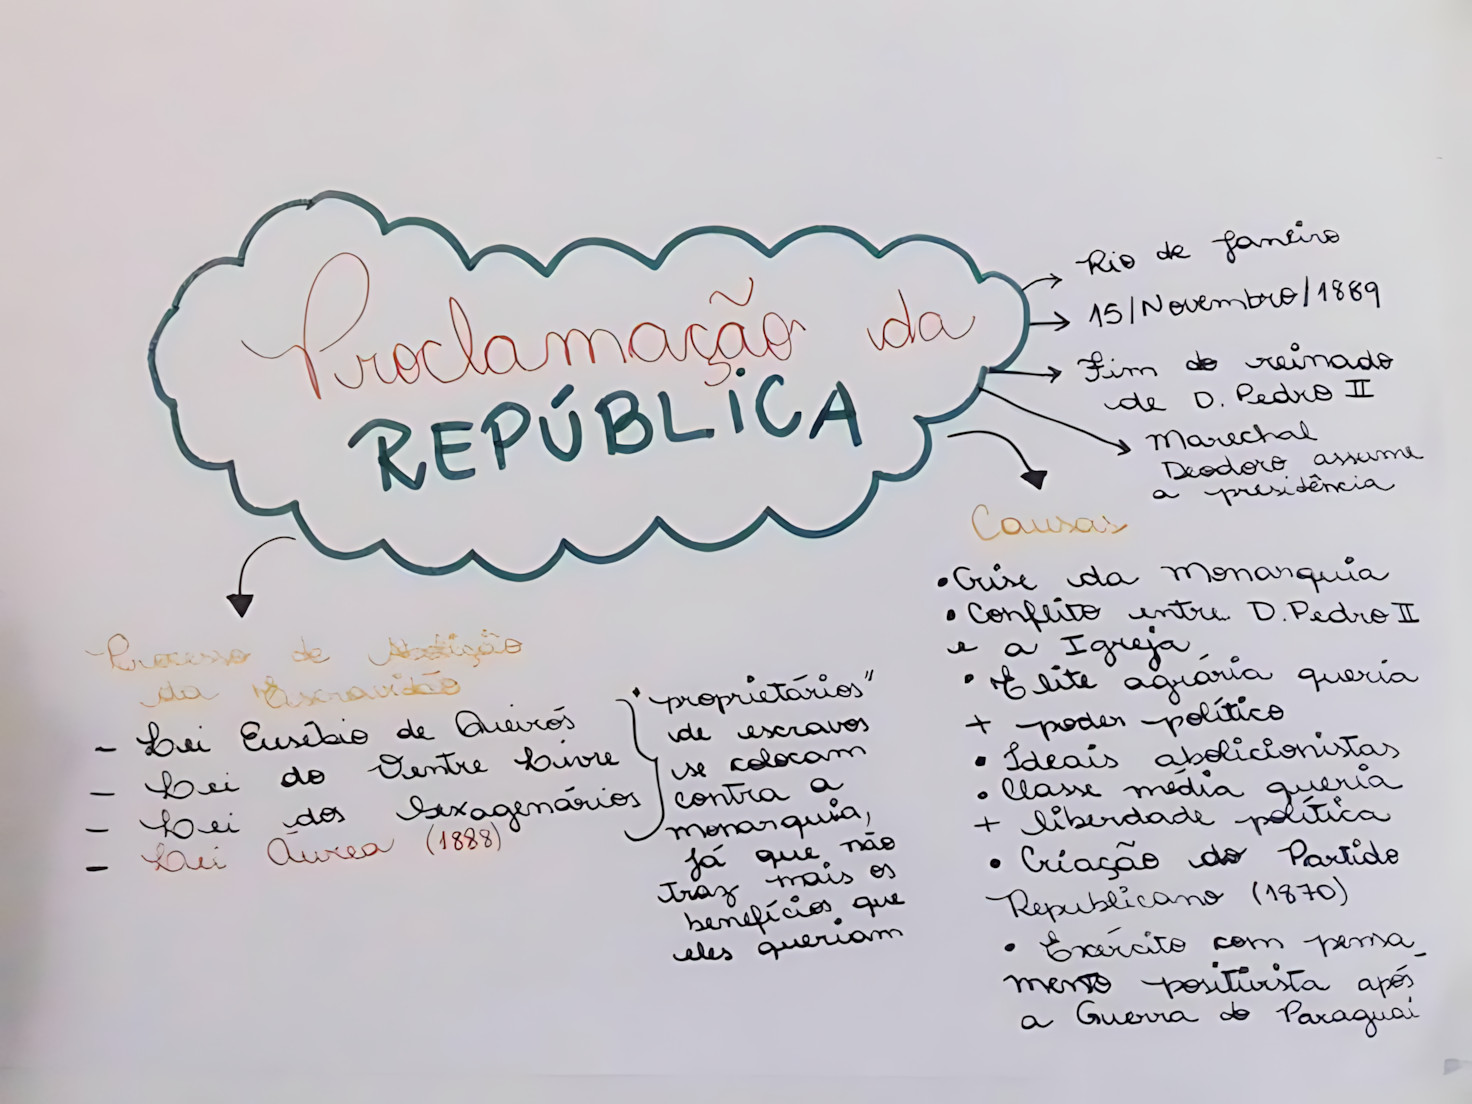 Proclamação da
REPÚBLICA
Rio de Janeiro
15/Novembro/1889
Fim do reinado
de D. Pedro II
Marechal
Deodoro assume
a presidência
Causas
• Crise da Monarquia
• Conflito entre D. Pedro II
e a Igreja
• Elite agrária queria
+ poder político
• Ideais abolicionistas
• Classe média queria
+ liberdade política
• Criação do Partido
Republicano (1870)
• Exército com pensa-
mento positivista após
a Guerra do Paraguai
Processo de Abolição
da Escravidão
- Lei Eusébio de Queirós
- Lei do Ventre Livre
- Lei dos Sexagenários
- Lei Áurea (1888)
"proprietários"
de escravos
se colocam
contra a
monarquia,
já que não
traz mais os
benefícios que
eles queriam